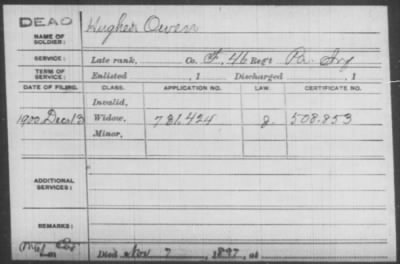 DEAD
NAME OF SOLDIER: Hughes Owen
SERVICE: Late rank, Co. F, 46 Reg't Pa. Inf
TERM OF SERVICE: Enlisted , 1 Discharged , 1
DATE OF FILING. CLASS. APPLICATION NO. LAW. CERTIFICATE NO.
Invalid,
1900 Dec 13 Widow, 781.424 508.853
Minor,
ADDITIONAL SERVICES:
REMARKS:
Died Nov 7, 1897, at